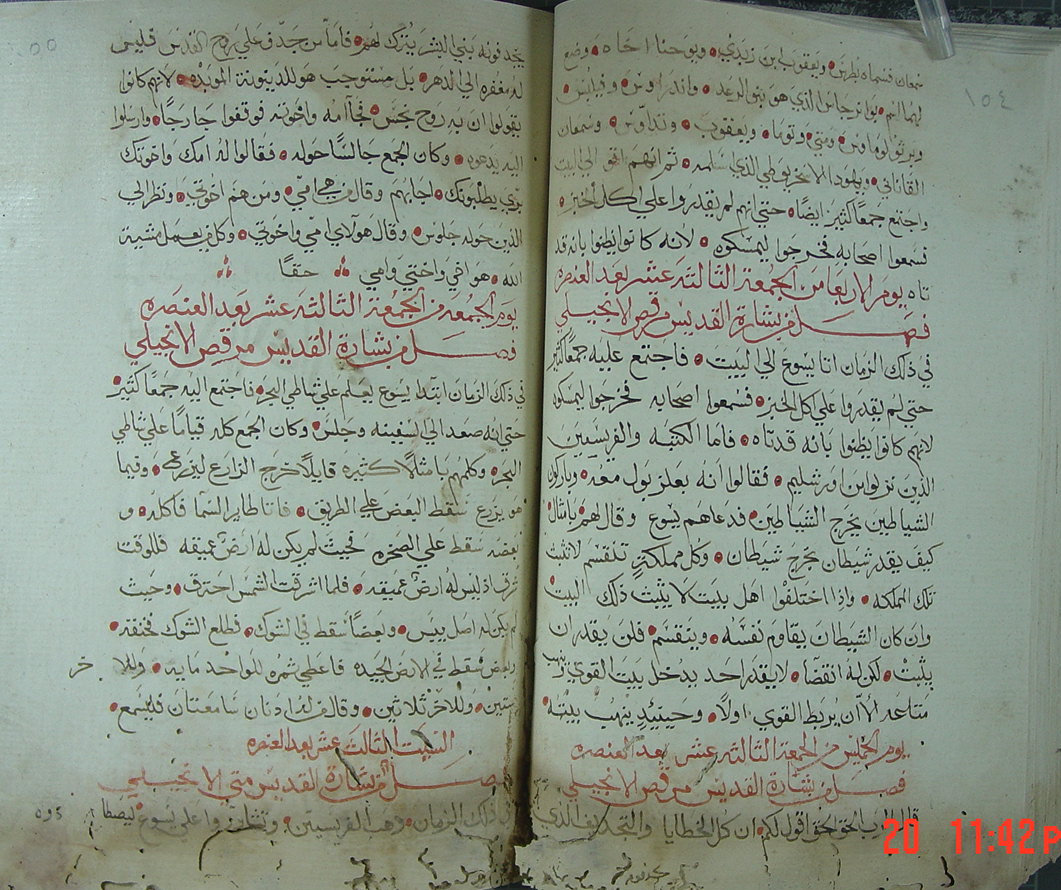 ١٥٤
سمعان فسماه بطرس ويعقوب ابن زبدي ويوحنا اخاه وضع
لهما اسم بوانرجاس الذي هو بنو الرعد واندراوس وفيلبس
وبرتولوماوس ومتي وتوما ويعقوب وتداوس وسمعان
القاناني ويهودا الاسخريوطي الذي سلمه ثم انهم اتوا الي البيت
واجتمع جمعًا كثير ايضًا حتي انهم لم يقدروا علي اكل الخبز
فسمعوا اصحابه فخرجوا ليمسكوه لانه كانوا يظنوا بانه قد
تاه يوم الاربعا من الجمعة الثالثة عشر بعد العنصره
فصل من بشارة القديس مرقص الانجيلي
في ذلك الزمان اتا يسوع الي البيت فاجتمع عليه جمعًا كثير
حتي لم يقدروا علي اكل الخبز فسمعوا اصحابه فخرجوا ليمسكوه
لانهم كانوا يظنوا بانه قد تاه فاما الكتبه والفريسيين
الذين نزلوا من اورشليم فقالوا انه بعلزبول معه وباركون
الشياطين يخرج الشياطين فدعاهم يسوع وقال لهم بامثال
كيف يقدر شيطان يخرج شيطان وكل مملكة تنقسم لا تثبت
تلك المملكه واذا اختلفوا اهل بيت لا يثبث ذلك البيت
وان كان الشيطان يقاوم نفسه وينقسم فلن يقدر ان
يثبت لكن له انقضا لا يقدر احد يدخل بيت القوي وينهب
متاعه الا ان يربط القوي اولًا وحينيئدٍ ينهب بيته
يوم الخميس من الجمعة الثالثه عشر بعد العنصره
فصل من بشارة القديس مرقص الانجيلي
قال الرب الحق الحق اقول لكم ان كل الخطايا والتجديف الذي
١٥٥
يجدفونه بني البشر يترك لهم فاما من جدف علي روح القدس فليس
له مغفره الي الدهر بل مستوجب هو للدينونة الموبده لانهم كانوا
يقولوا ان به روح نجس فجاآ امه واخوته فوقفوا خارجًا وارسلوا
اليه يدعوه وكان الجمع جالسًا حوله فقالوا له امك واخوتك
برى يطلبونك اجابهم وقال من هي امي ومن هم اخوتي ونظر الي
الذين حوله جلوس وقال هولاي امي واخوتي وكل من يعمل مشية
الله هو اخي واختي وامي حقًا
يوم الجمعة من الجمعة الثالثه عشر بعد العنصره
فصل من بشارة القديس مرقص الانجيلي
في ذلك الزمان ابتدا يسوع يعلم علي شاطي البحر فاجتمع اليه جمعًا كثير
حتي انه صعد الي السفينه وجلس وكان الجمع كله قيامًا علي شاطي
البحر وكلمهم بامثالًا كثيره قايلًا خرج الزارع ليزرع وفيما
هو يزرع سقط البعض علي الطريق فاتا طاير السما فاكله و
بعضه سقط علي الصخره بحيث لم يكن له ارض عميقه فللوقت
شرق اذ ليس له ارض عميقه فلما اشرقت الشمس احترق وحيث
لم يكن له اصل يبس وبعضًا سقط في الشوك فطلع الشوك فخنقه
وبعض سقط في الارض الجيده فاعطي ثمره للواحد مايه وللاخر
ستين وللاخر ثلاثين وقال من له اذنان سامعتان فليسمع
السبت الثالث عشر بعد العنصره
فصل من بشارة القديس متي الانجيلي
في ذلك الزمان وهب الفريسين وتشاوروا علي يسوع ليصطا
دوه
20 11:42P